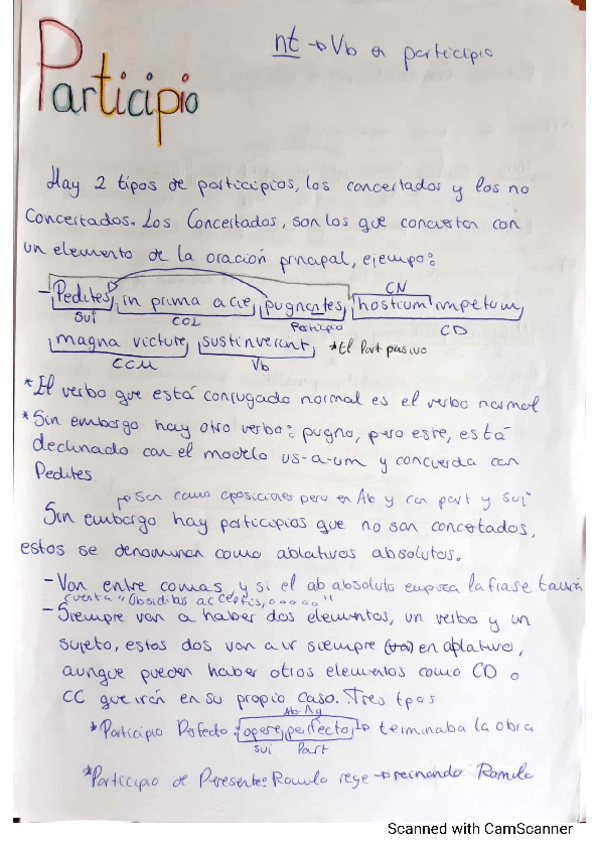 nt → Vb en participio
Participio
Hay 2 tipos de participios, los concertados y los no
Concertados. Los Concertados, son los que concuerdan con
un elemento de la oración principal, ejemplo:
CN
- Pedites, in prima acie, pugnantes, hostium impetum,
Suj CCL Participio CD
magna victute, sustinverunt, *El Part pasivo
CCM Vb
*El verbo que está conjugado normal es el verbo normal
*Sin embargo hay otro verbo: pugno, pero este, está
declinado con el modelo us-a-um y concuerda con
Pedites
→ Son como aposiciones pero en Ab y con part y suj
Sin embargo hay participios que no son concertados,
estos se denominan como ablativos absolutos.
- Van entre comas, y si el ab absoluto empieza la frase también
cuenta "Obsidibus acceptis, ....."
- Siempre van a haber dos elementos, un verbo y un
sujeto, estos dos van a ir siempre en ablativo,
aunque pueden haber otros elementos como CD o
CC que irán en su propio caso. Tres tipos
*Participio Perfecto: opere, perfecto, → terminaba la obra
Suj Part
*Participio de Presente: Romulo rege → reinando Romulo
Scanned with CamScanner